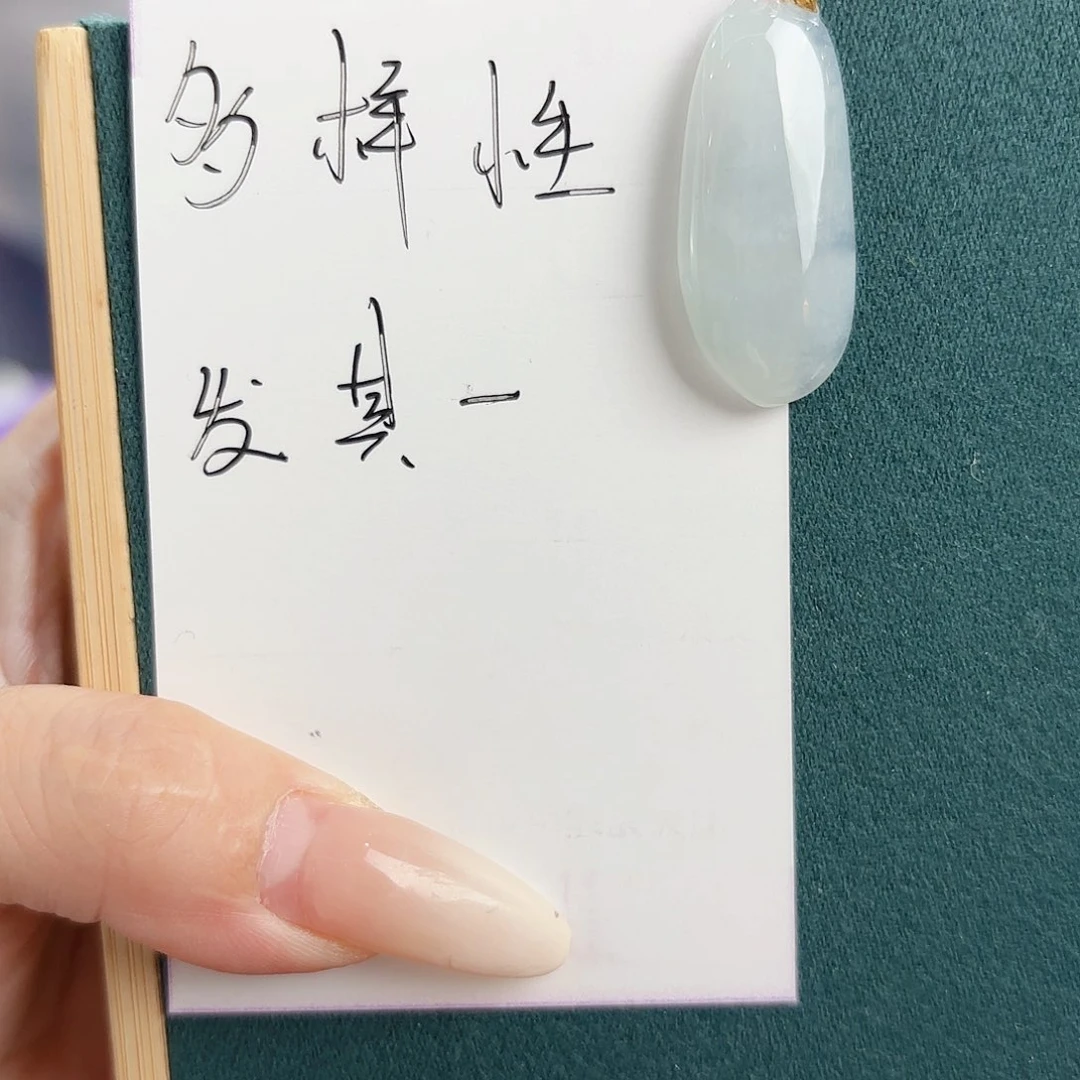 多样性
发其一